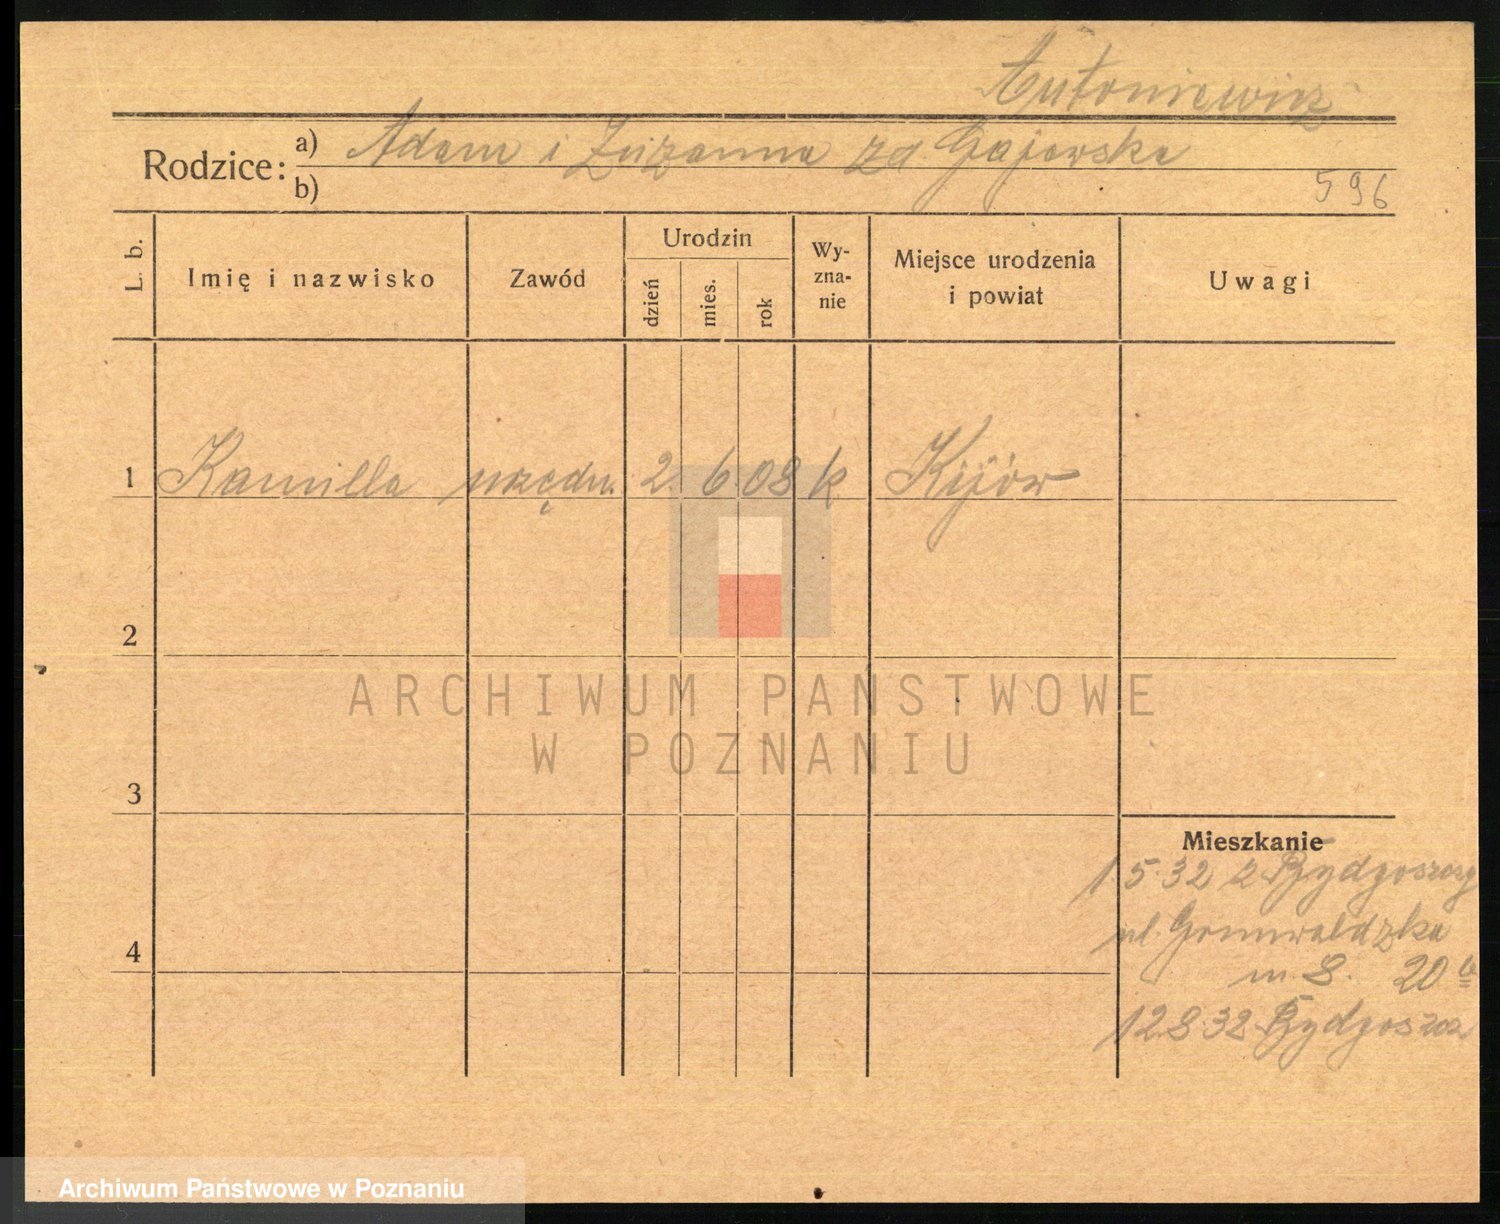 Antoniewicz
Rodzice: a) Adam i Zuzanna zd Gajewska
b)
596
L. b.
Imię i nazwisko
Zawód
Urodzin
dzień
mies.
rok
Wy-
zna-
nie
Miejsce urodzenia
i powiat
Uwagi
1 Kamilla urzędn. 2. 6. 08 k Kijów
2
3
4
ARCHIWUM PAŃSTWOWE
W POZNANIU
Mieszkanie
1.5.32 z Bydgoszczy
ul. Grunwaldzka
m 8. 20
12.8.32 Bydgoszcz
Archiwum Państwowe w Poznaniu